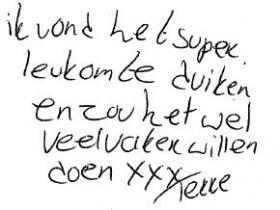 ik vond het super
leuk om te duiken
en zou het wel
veel vaker willen
doen XXX